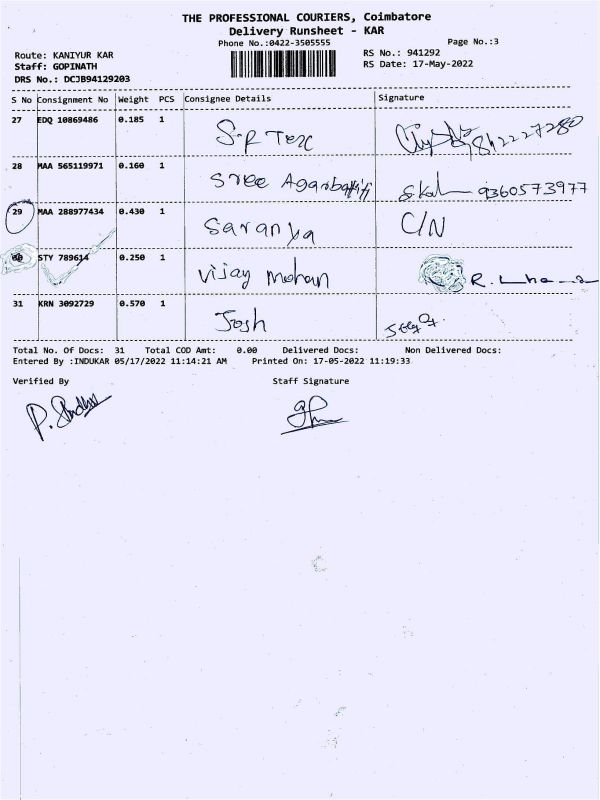 THE PROFESSIONAL COURIERS, Coimbatore
Delivery Runsheet - KAR
Phone No.:0422-3505555
Page No.:3
Route: KANIYUR KAR
RS No.: 941292
Staff: GOPINATH
RS Date: 17-May-2022
DRS No.: DCJB94129203
S No Consignment No Weight PCS Consignee Details Signature
27 EDQ 10869486 0.185 1 S.R Tex
28 MAA 565119971 0.160 1 Sree Agarbatti 9360573977
29 MAA 288977434 0.430 1 Saranya C/N
STY 789614 0.250 1 Vijay Mohan R.
31 KRN 3092729 0.570 1 Josh
Total No. Of Docs: 31 Total COD Amt: 0.00 Delivered Docs: Non Delivered Docs:
Entered By :INDUKAR 05/17/2022 11:14:21 AM Printed On: 17-05-2022 11:19:33
Verified By Staff Signature